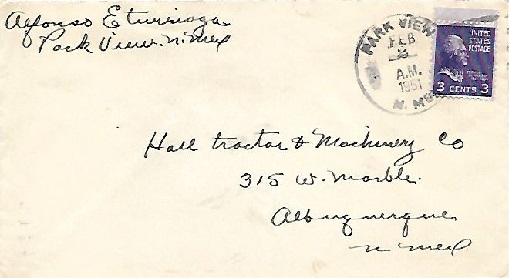 Alfonso Eturriaga
Park View. N. Mex
PARK VIEW
FEB
A.M.
1951
N. MEX
UNITED
STATES
POSTAGE
3 CENTS 3
Hall tractor & Machinery Co
315 W. Marble.
Albuquerque
N Mex